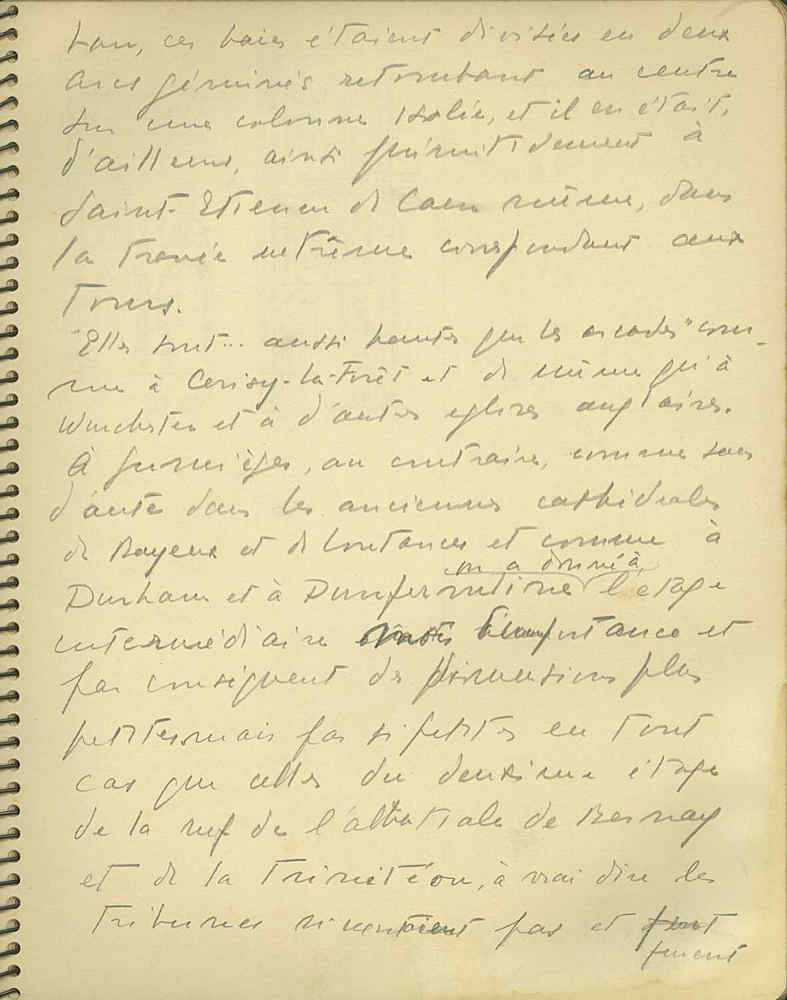 ton, ces baies étaient divisées en deux
arcs géminés retombant au centre
sur une colonne isolée, et il en était,
d'ailleurs, ainsi primitivement à
Saint-Etienne de Caen même, dans
la travée extrême correspondant aux
tours.
"Elles sont... aussi hautes que les arcades" com-
me à Cerisy-la-Forêt et de même qu'à
Winchester et à d'autres eglises anglaises.
A Jumièges, au contraire, comme sans
d'oute dans les anciennes cathédrales
de Bayeux et de Coutances et comme à
on a donné à
Durham et à Dunfermline l'étage
intermédiaire moins d'importance et
par conséquent des dimensions plus
petites mais pas si petites en tout
cas que celles du deuxième étage
de la nef de l'abbatiale de Bernay
et de la Trinité où, à vrai dire les
tribunes n'existaient pas et
furent